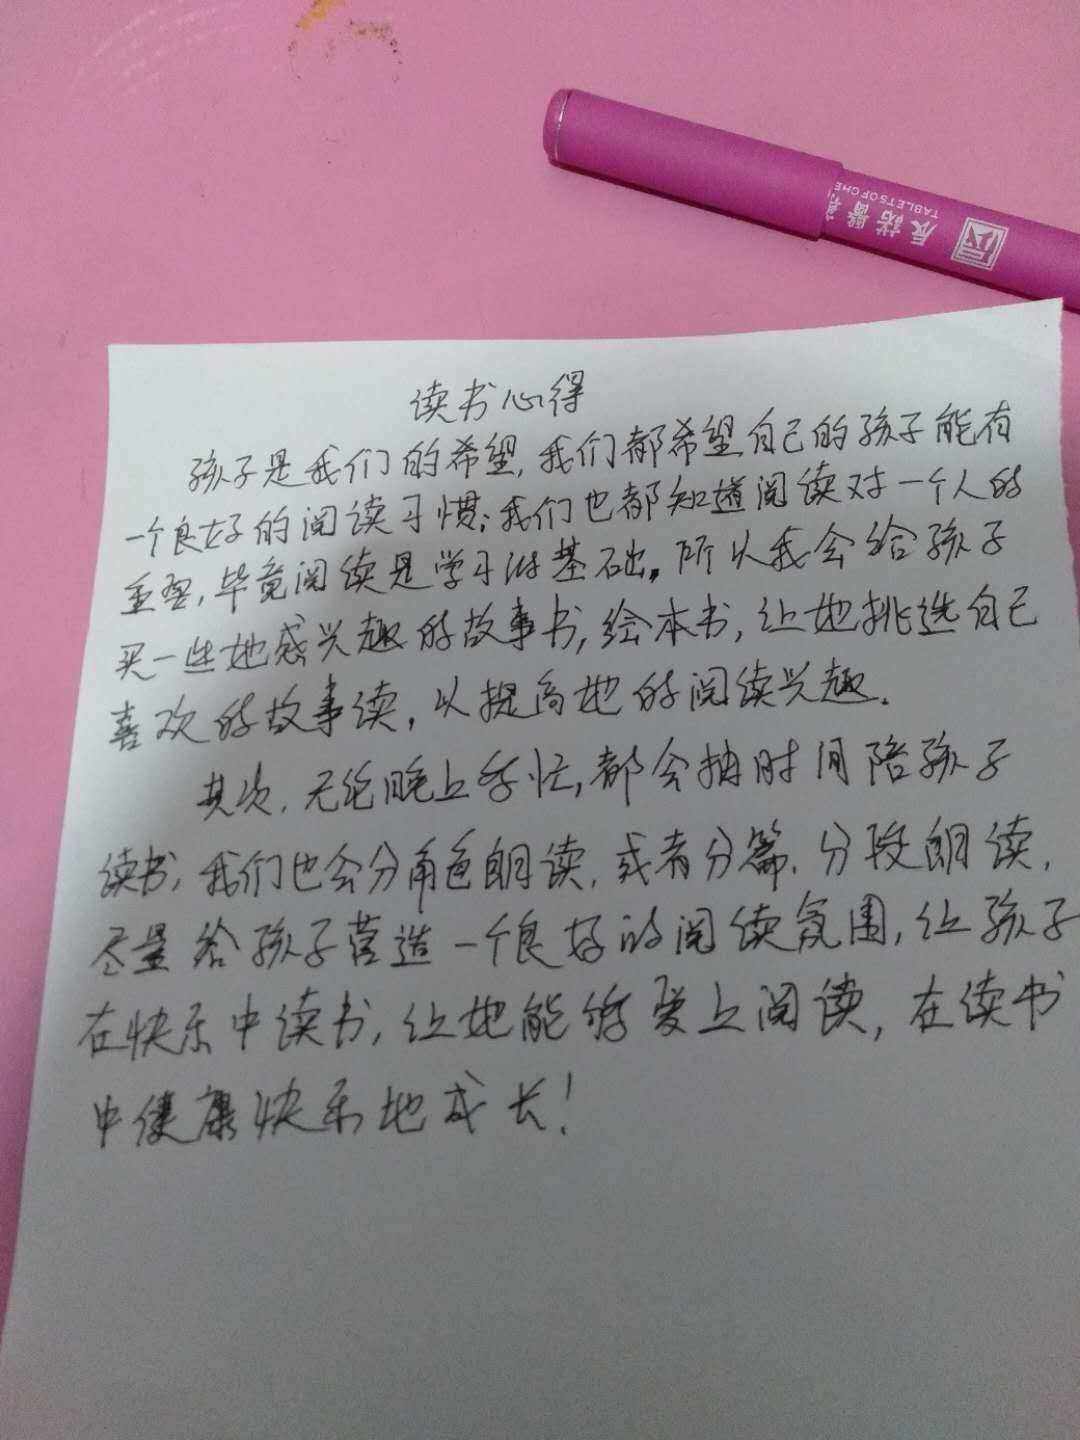 辰諾醫
TABLETSOFCHE
读书心得
孩子是我们的希望,我们都希望自己的孩子能有
一个良好的阅读习惯;我们也都知道阅读对一个人的
重要,毕竟阅读是学习的基础。所以我会给孩子
买一些她感兴趣的故事书,绘本书,让她挑选自己
喜欢的故事读,以提高她的阅读兴趣.
其次,无论晚上多忙,都会抽时间陪孩子
读书,我们也会分角色朗读,或者分篇、分段朗读,
尽量给孩子营造一个良好的阅读氛围,让孩子
在快乐中读书,让她能够爱上阅读,在读书
中健康快乐地成长!